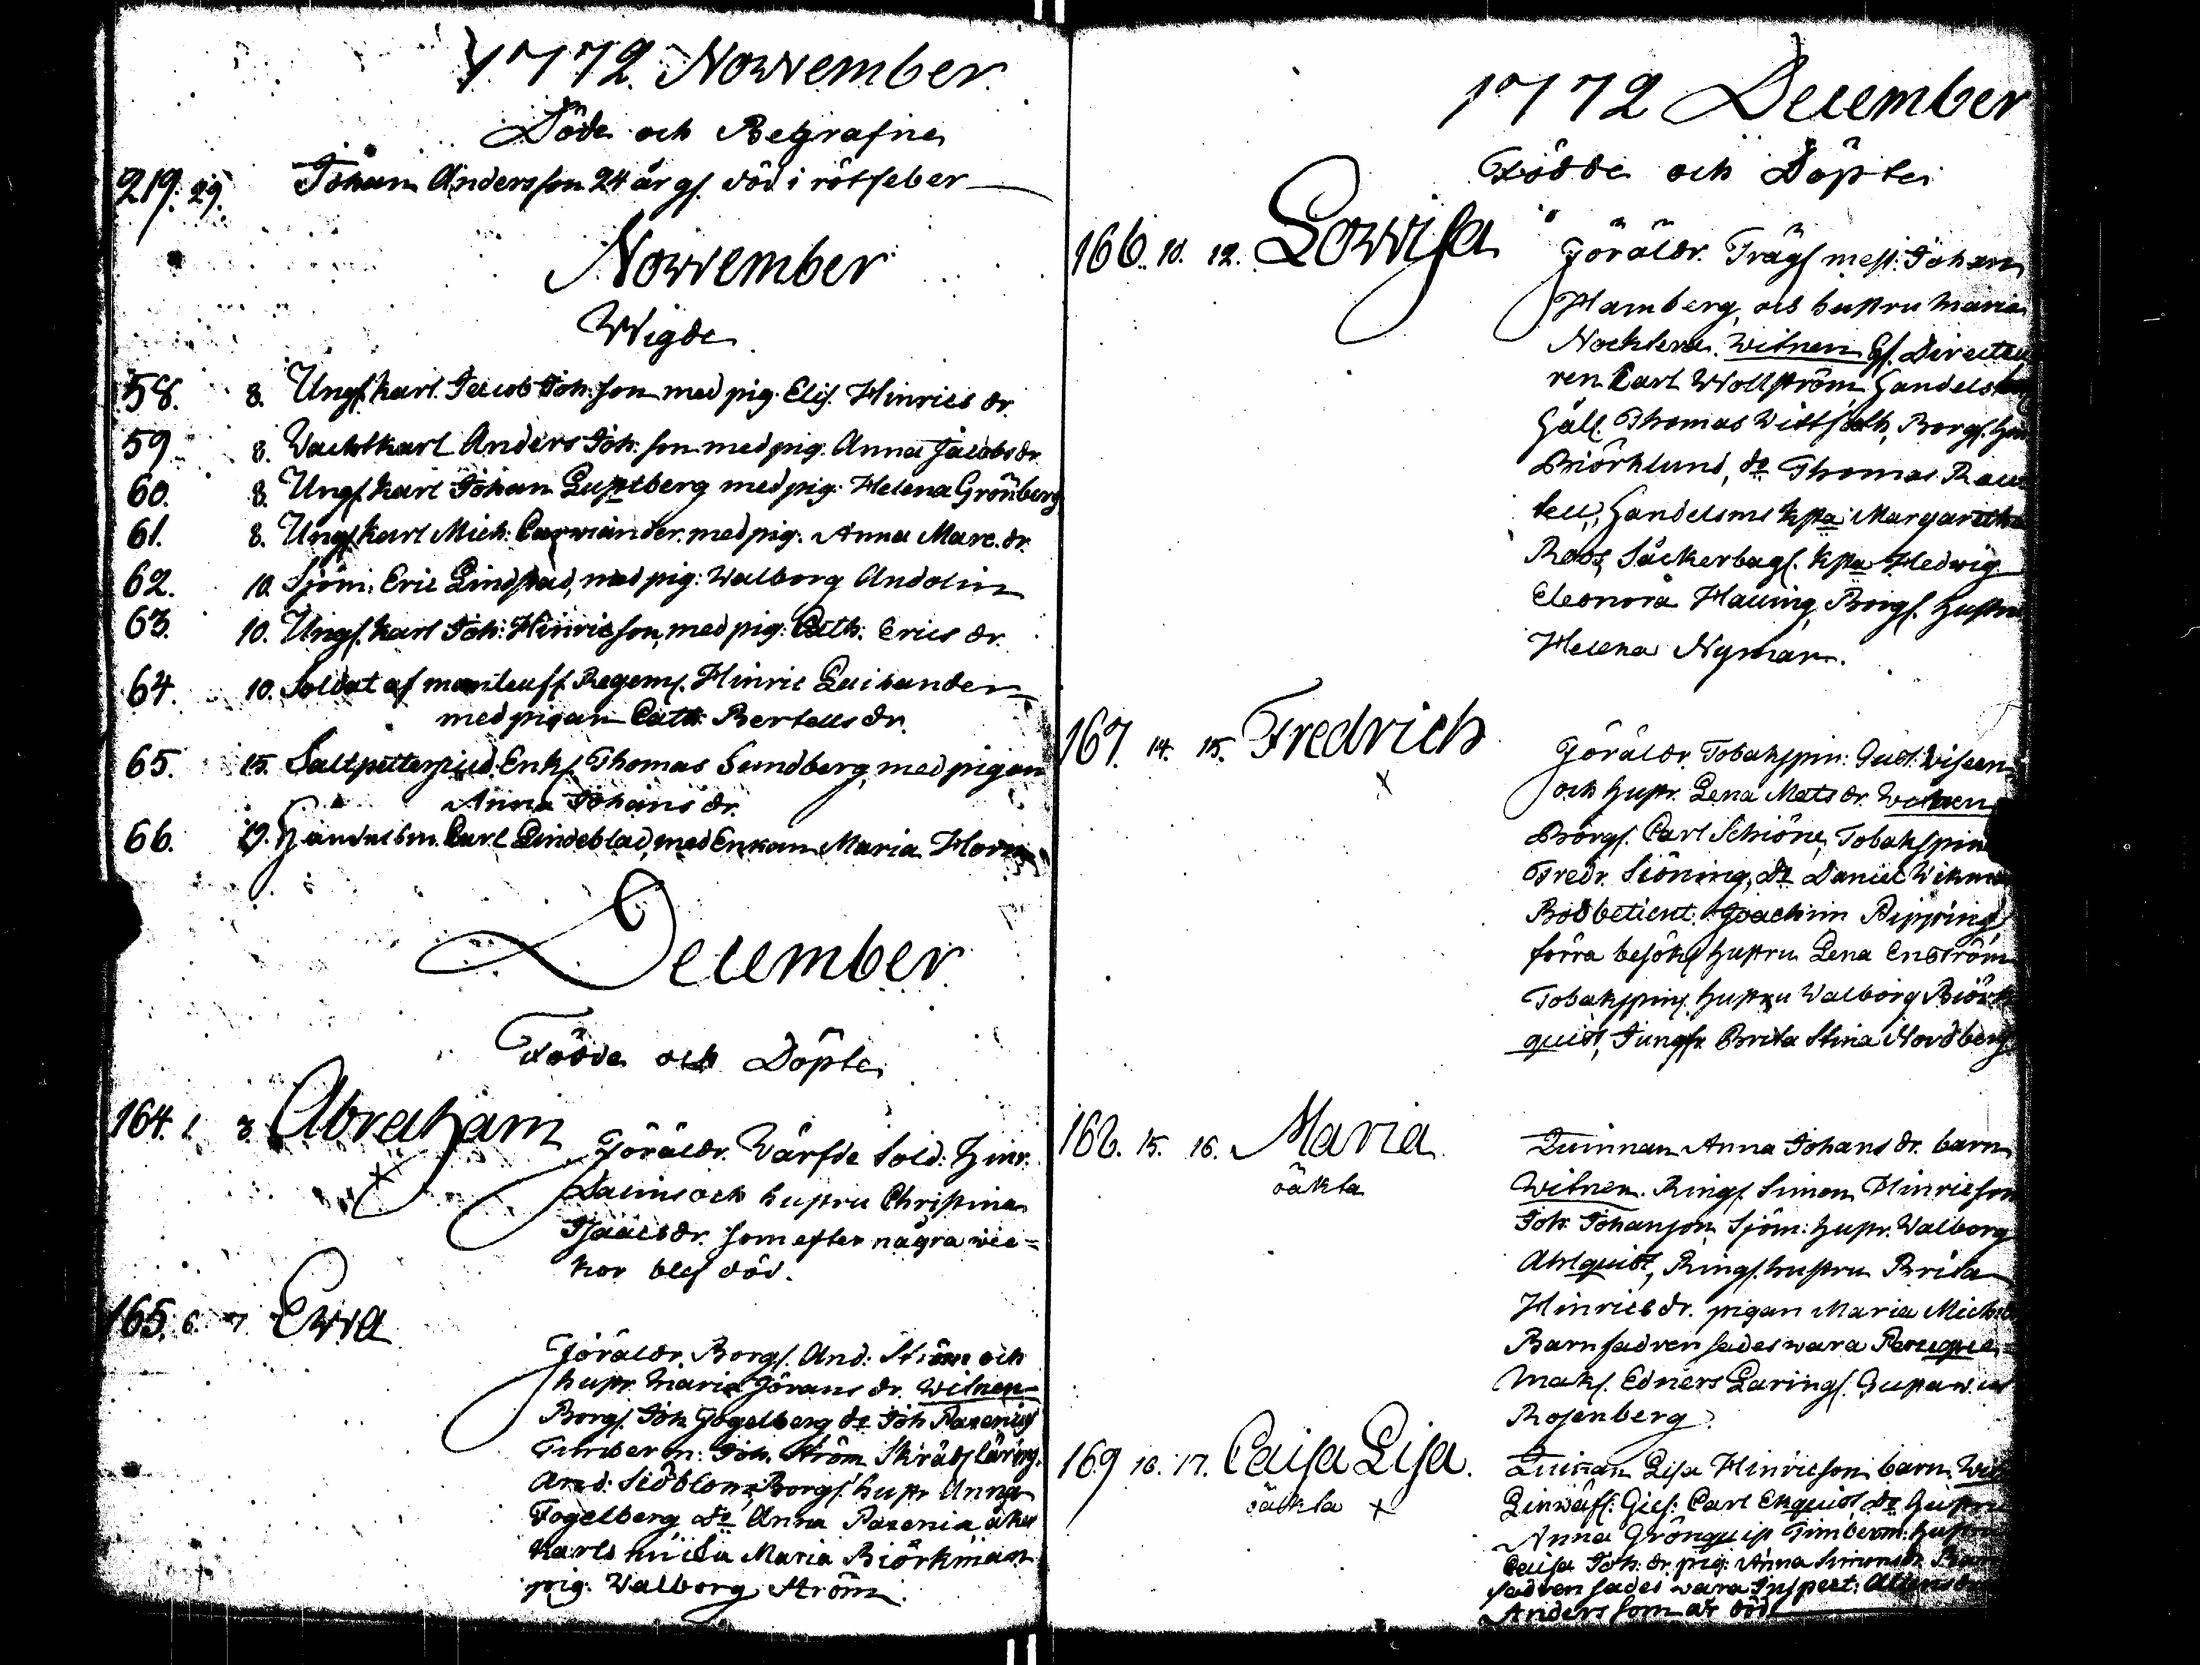 1772. November.
Döde och Begrafne
219. 29. Johan Andersson 24 år gl. död i rötfeber
November
Wigde
58. 8. Ungf. karl Jacob Joh. son med pig. Elis. Hinrics dr.
59 8. Wachtkarl Anders Joh. son med pig. Anna Jacobs dr.
60. 8. Ungf. karl Johan Luptberg med pig. Helena Grönberg
61. 8. Ungf. karl Mich. med pig. Anna Marc. dr.
62. 10. Sjöm. Eric Lindstad, med pig: Walborg Andolin
63. 10. Ungf. karl Joh: Hinricson, med pig: Cath: Erics dr.
64. 10. Soldat af Regem. Hinric
med pigan Cath. Bertells dr.
65. 15. Saltpettersjud. Enkl. Thomas Sundberg, med pigan
Anna Johans dr.
66. Handelsm. Carl Lindeblad, med Enkan Maria Horn
December
Födde och Döpte
164. 1. 3. Abraham Föräldr. Värfde Sold: Hinr.
och hustru Christina
Isaacs dr. som efter några wec=
kor blef död.
165. 6. 7. Ewa
Föräldr. Borgf. And: Ström och
hustr. Maria Görans dr. Witnen
Borgf. Joh Fogelberg do Joh Paxenius
Timberm: Joh. Ström Skrädf läring.
And: Siöblom, Borgf. hustr Anna
Fogelberg do Anna Paxenia åker
karls Maria Biörkman
pig: Walborg Ström.
1772 December
Födde och Döpte
166. 10. 12. Lowisa Föräldr. Trägf mest: Johan
Hamberg, och hustru Maria
Witnen Directeu
ren Carl Wollström, Handels
Gäll Thomas Wittfooth, Borgf.
Biörklund, do Thomas
Handelsms Margaretha
Roos, Såckerbagf. Hedwig
Eleonora Hauing, Borgf. hustru
Helena Nyman.
167. 14. 15. Fredrich
Föräldr. Tobakspin:
och hustr. Lena Mats dr. Witnen
Borgf. Carl Schiöne, Tobakspin
Fredr. Siöning, do Daniel Wikman
Bodbetient. Joachim Pipping
förra besök hustru Lena Enström
Tobakspin. hustru Walborg Biörk
quist, Jungfr. Brita Stina Nordberg
168. 15. 16. Maria
oäkta
Quinnan Anna Johans dr. barn
Witnen. Ringf. Simon Hinricson
Joh: Johanson, Sjöm: hustr. Walborg
Ahlquist, Ringf. hustru Brita
Hinrics dr. pigan Maria Michels
Barnfadren sades wara Peruque=
mak. Edners Läring. Gustaw
Rosenberg.
169. 16. 17. Caisa Lisa.
oäkta
Quinnan Lisa Hinricson barn. Wit
Linwäf: Gies: Carl Ekquist, do hustru
Anna Grönquist Timberm: hustru
Caisa Joh. dr. pig: Anna Simonsdr. Barn
fadren sades wara Inspect:
Anders som är död